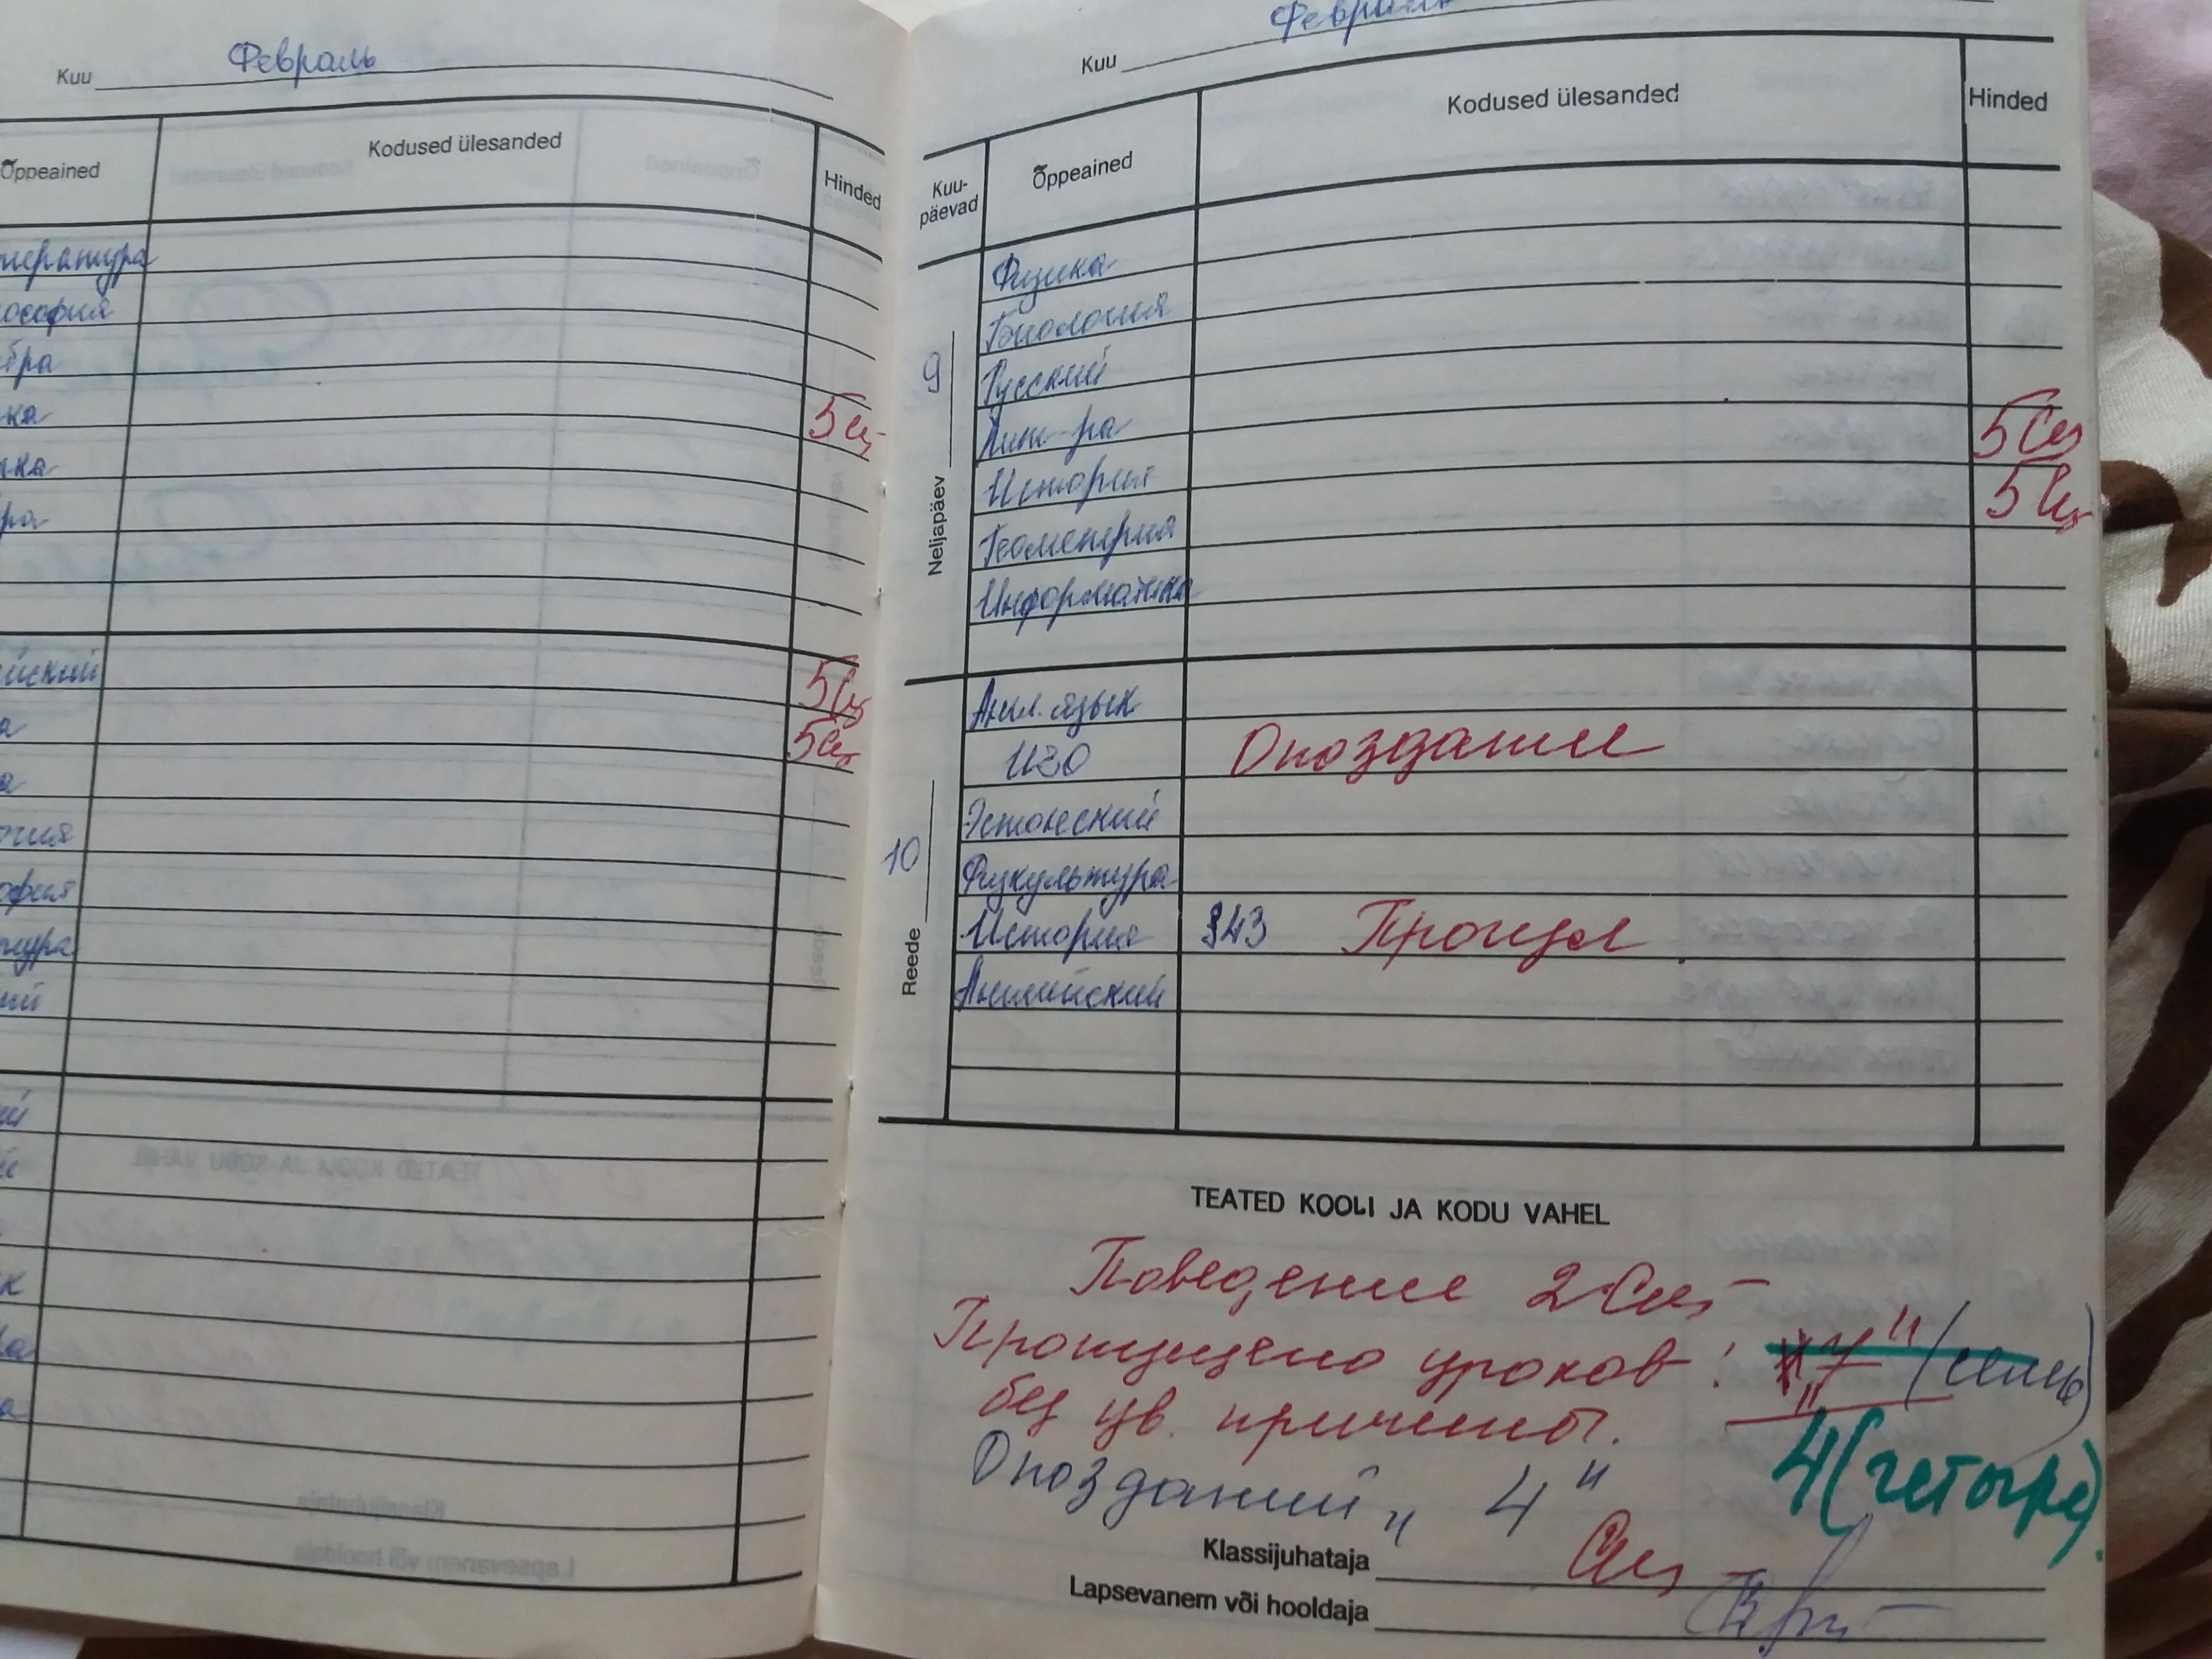 Kuu Февраль
Õppeained Kodused ülesanded Hinded
тература
ософия
бра
ка 5
ка
ра
йский 5
а 5
а
гия
офия
тура
ий
ий
к
ра
а
Kuu Февраль
Kuu-
päevad Õppeained Kodused ülesanded Hinded
9 Neljapäev
Физика
Биология
Русский
Лит-ра 5
История 5
Геометрия
Информатика
10 Reede
Англ. язык
ИЗО Опоздание
Эстонский
Физкультура
История §43 Прогул
Английский
TEATED KOOLI JA KODU VAHEL
Поведение 2
Пропущено уроков: "7" (семь)
без ув. причины. 4 (четыре).
Опозданий „ 4"
Klassijuhataja
Lapsevanem või hooldaja